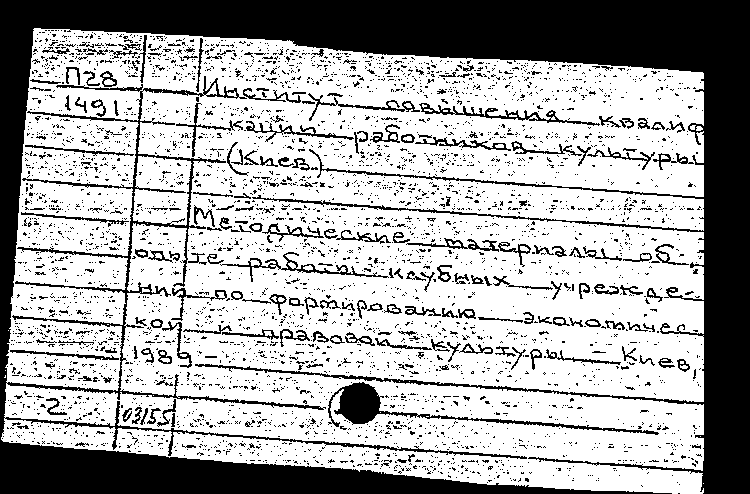 П28
1491
Институт повышения квалиф
кации работников культуры
(Киев)
Методические материалы об
опыте работы клубных учрежде-
ний по формированию экономичес-
кой и правовой культуры – Киев,
1989 –
2 03155